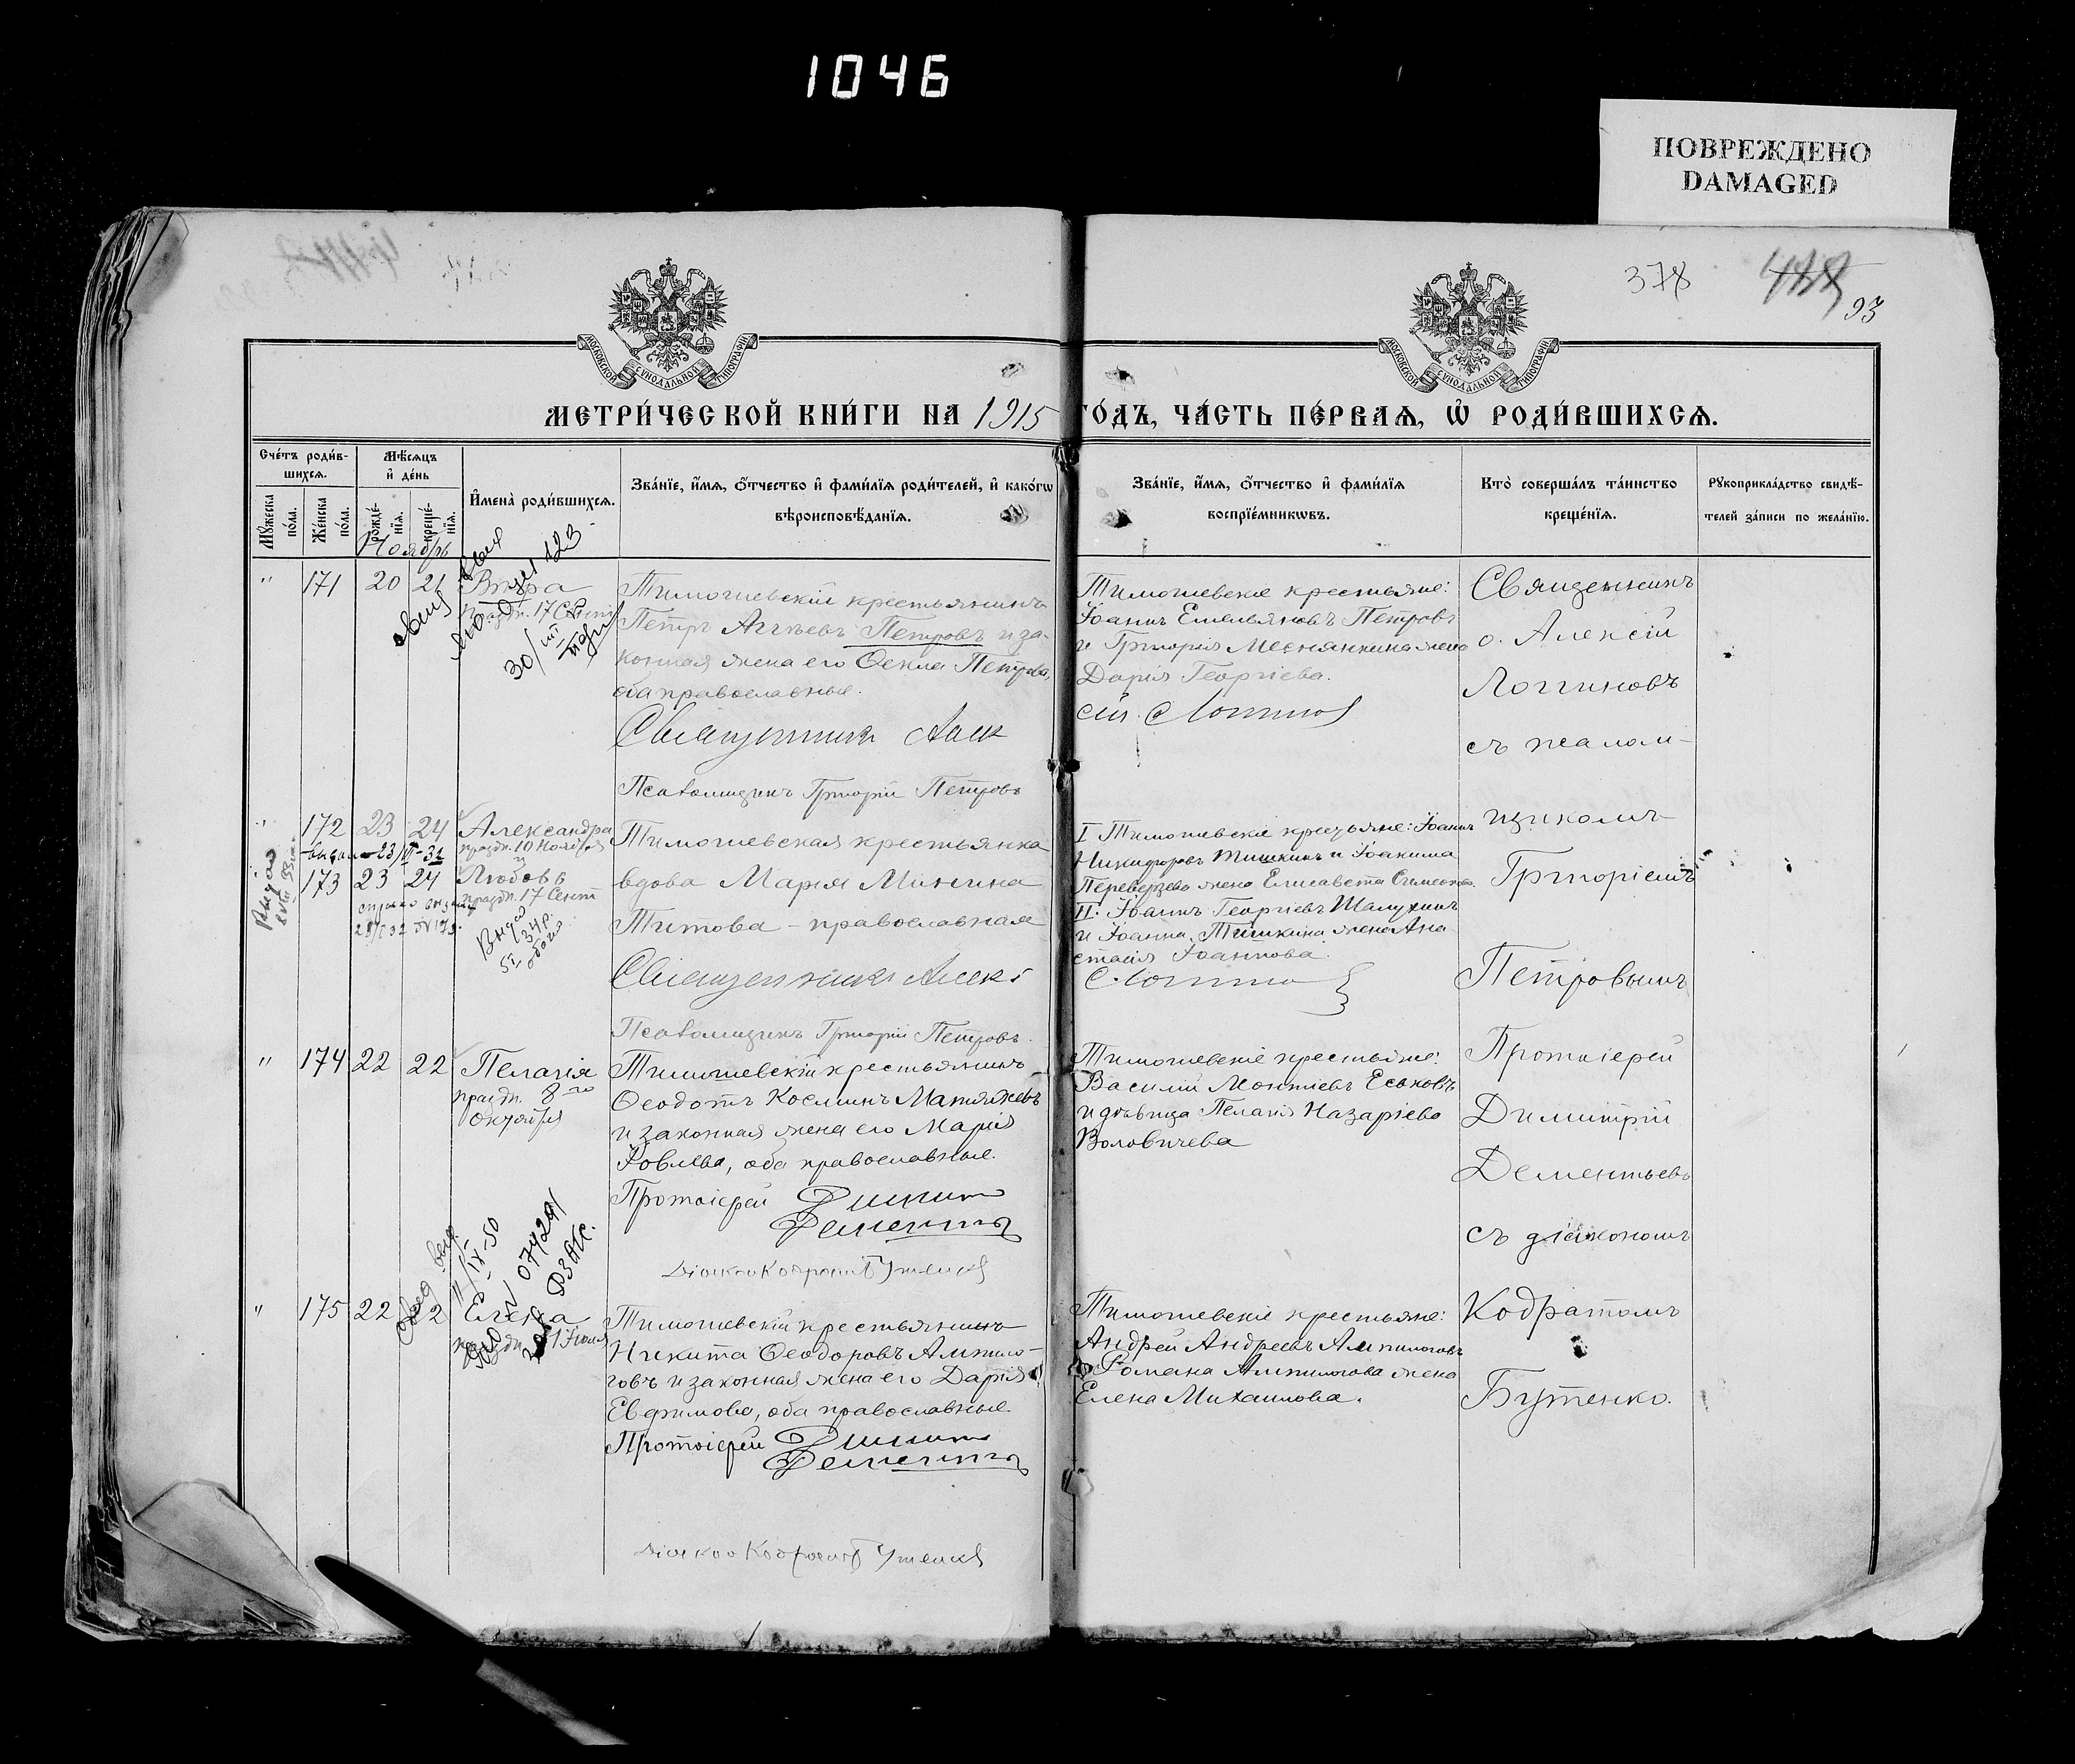 1046
ПОВРЕЖДЕНО
DAMAGED
378
93
МОСКОВСКОЙ СѴНОДАЛЬНОЙ ТИПОГРАФІИ
МОСКОВСКОЙ СѴНОДАЛЬНОЙ ТИПОГРАФІИ
МЕТРИ́ЧЕСКОЙ КНИ́ГИ НА 1915 ГО́ДЪ, ЧА́СТЬ ПЕ́РВАѦ, Ѡ҆ РОДИ́ВШИХСѦ.
Сче́тъ роди́в-
шихсѧ.
Мꙋ́жеска по́ла.
Же́нска по́ла.
Мѣ́сѧцъ
и҆ де́нь
рожде́-
нїѧ.
креще́-
нїѧ.
И҆мена̀ роди́вшихсѧ.
Зва́нїе, и҆́мѧ, ѻ҆́тчество и҆ фами́лїѧ роди́телей, и҆ како́гѡ
вѣроисповѣ́данїѧ.
Зва́нїе, и҆́мѧ, ѻ҆́тчество и҆ фами́лїѧ
воспрїе́мникѡвъ.
Кто̀ соверша́лъ та́инство
креще́нїѧ.
Рꙋкоприкла́дство свидѣ́-
телей за́писи по жела́нїю.
Ноябрь
" 171 20 21 Вѣра
праздн. 17 Сент
30/III
123
Тимошевскій крестьянинъ
Петръ Аггѣевъ Петровъ и за-
конная жена его Ѳекла Петрова,
оба православные.
Священникъ Алек
Псаломщикъ Григорій Петровъ
Тимошевскіе крестьяне:
Іоаннъ Емельяновъ Петровъ
и Григорія Меснянкина жена
Дарія Георгіева.
сій Логгинов
Священникъ
о. Алексій
Логгиновъ
съ псалом-
щикомъ
Григоріемъ
Петровымъ
" 172 23 24 Александра
праздн. 10 Ноября
и
173 23 24 Любовь
праздн. 17 Сент
Тимошевская крестьянка
вдова Марія Минина
Титова - православная
Священникъ Алекс
Псаломщикъ Григорій Петровъ.
I Тимошевскіе крестьяне: Іоаннъ
Никифоровъ Тишкинъ и Іоакима
Переверзева жена Елисавета Симеонова.
II. Іоаннъ Георгіевъ Шалухинъ
и Іоанна Тишкина жена Ана
стасія Іоаннова.
" 174 22 22 Пелагія
праздн. 8го
Октября
Тимошевскій крестьянинъ
Ѳеодотъ Косминъ Матяжевъ
и законная жена его Марія
Іовлева, оба православные.
Протоіерей Димит
Дементьев
Тимошевскіе крестьяне:
Василій Монтіевъ Еськовъ
и дѣвица Пелагія Назаріева
Воловичева
Протоіерей
Димитрій
Дементьевъ
съ діакономъ
Кодратомъ
Бутенко.
11/IX-50
074291
РЗАГС.
" 175 22 22 Елена
праздн. 21 Мая
Тимошевскій крестьянинъ
Никита Ѳеодоровъ Ампило-
говъ и законная жена его Дарія
Евфимова, оба православные
Протоіерей Димит
Дементьев
Тимошевскіе крестьяне:
Андрей Андреевъ Ампилоговъ
и Романа Ампилогова жена
Елена Михаилова.